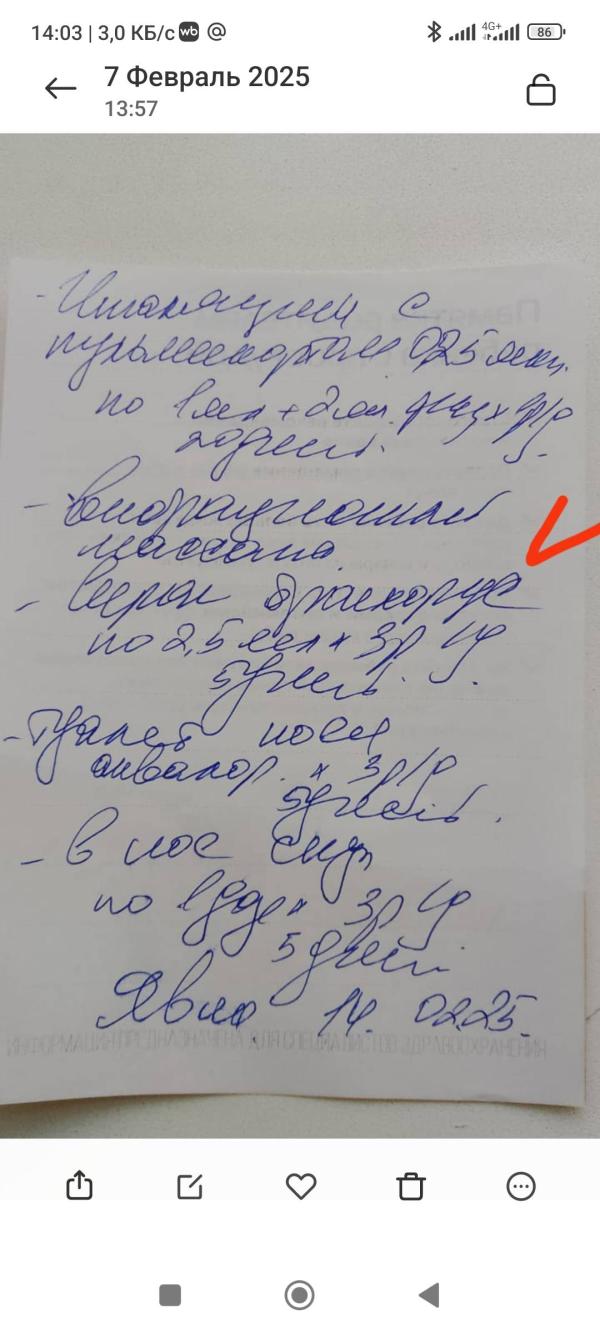 14:03 | 3,0 КБ/с wb @ 4G+ 86
7 Февраль 2025
13:57
- Ингаляции с
пульмикортом 0,25 мкг.
по 1 мл + 2 мл физ х 2 р/д
дней.
- Вибрационный
массаж.
- Сироп
по 2,5 мл х 3 р/д
5 дней.
- Туалет носа
аквалор. х 3 р/д
5 дней.
- В нос
по х 3 р/д
5 дней
Явка 14.02.25.
ИНФОРМАЦИЯ ПРЕДНАЗНАЧЕНА ДЛЯ СПЕЦИАЛИСТОВ ЗДРАВООХРАНЕНИЯ